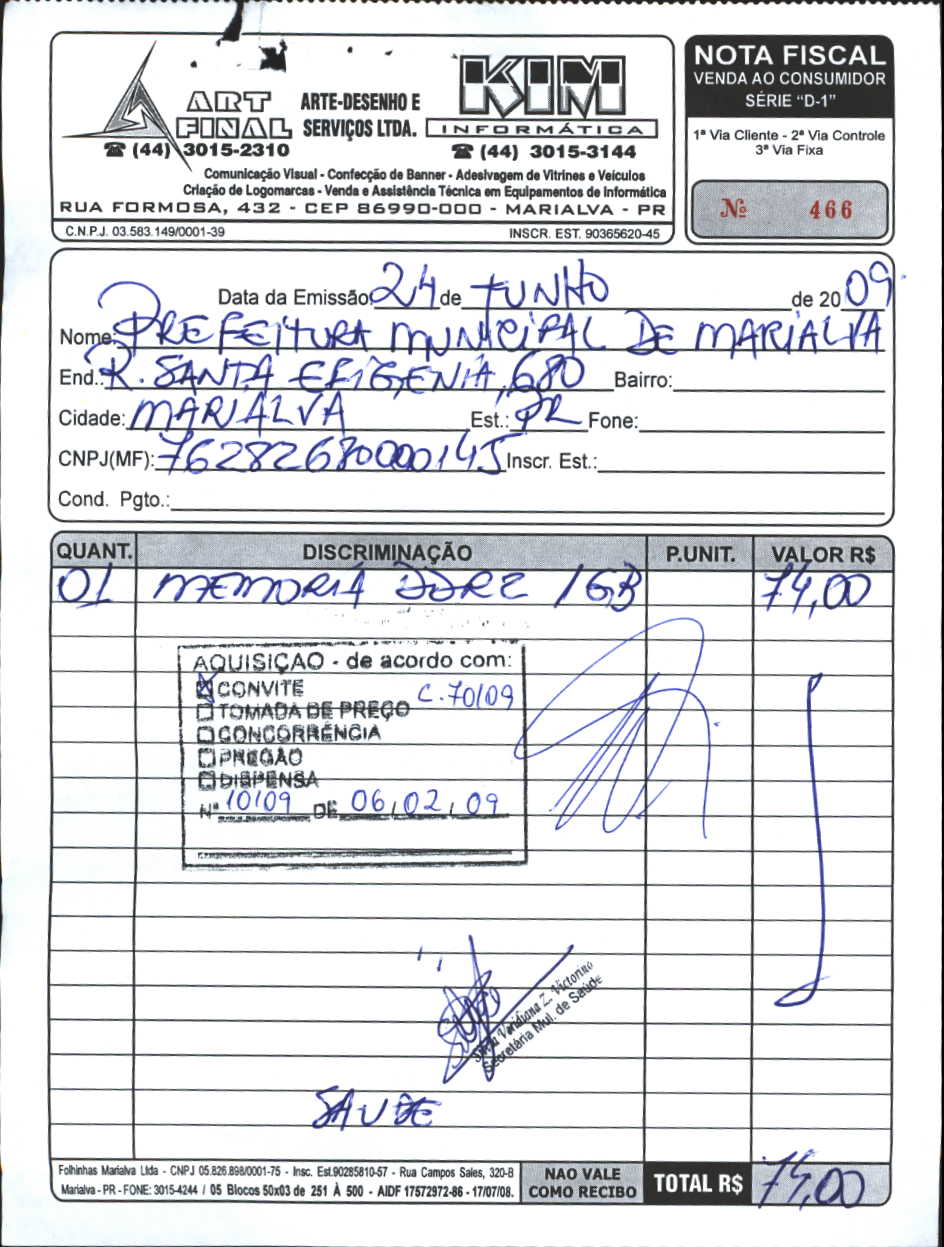 ART FINAL
ARTE-DESENHO E SERVIÇOS LTDA.
KIM INFORMÁTICA
☎ (44) 3015-2310
☎ (44) 3015-3144
Comunicação Visual - Confecção de Banner - Adesivagem de Vitrines e Veículos
Criação de Logomarcas - Venda e Assistência Técnica em Equipamentos de Informática
RUA FORMOSA, 432 - CEP 86990-000 - MARIALVA - PR
C.N.P.J. 03.583.149/0001-39 INSCR. EST. 90365620-45
NOTA FISCAL
VENDA AO CONSUMIDOR
SÉRIE "D-1"
1ª Via Cliente - 2ª Via Controle
3ª Via Fixa
Nº 466
Data da Emissão 24 de JUNHO de 2009
Nome: PREFEITURA MUNICIPAL DE MARIALVA
End.: R. SANTA EFIGENIA, 680 Bairro:
Cidade: MARIALVA Est.: PR Fone:
CNPJ(MF): 76282680000145 Inscr. Est.:
Cond. Pgto.:
QUANT. DISCRIMINAÇÃO P.UNIT. VALOR R$
01 MEMORIA DDR2 1GB 74,00
AQUISIÇAO - de acordo com:
CONVITE C.70/09
TOMADA DE PREÇO
CONCORRÊNCIA
PREGÃO
DISPENSA
Nº 10/09 DE 06/02/09
Veridiana Z. Victorino
Secretária Mul. de Saúde
SAUDE
Folhinhas Marialva Ltda - CNPJ 05.826.898/0001-75 - Insc. Est.90285810-57 - Rua Campos Sales, 320-B
Marialva - PR - FONE: 3015-4244 / 05 Blocos 50x03 de 251 À 500 - AIDF 17572972-86 - 17/07/08.
NAO VALE
COMO RECIBO
TOTAL R$ 74,00